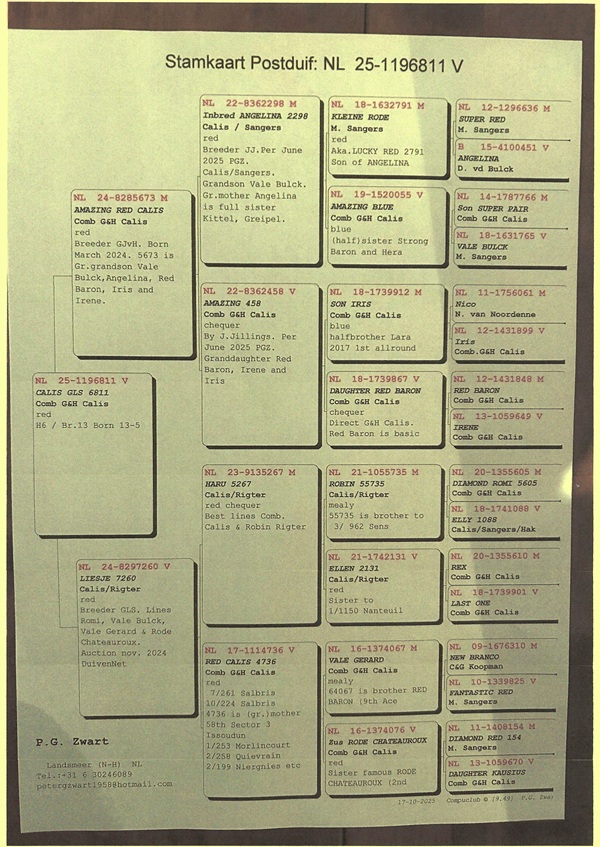 Stamkaart Postduif: NL 25-1196811 V
NL 25-1196811 V
CALIS GLS 6811
Comb G&H Calis
red
H6 / Br.13 Born 13-5
NL 24-8285673 M
AMAZING RED CALIS
Comb G&H Calis
red
Breeder GJvH. Born
March 2024. 5673 is
Gr.grandson Vale
Bulck,Angelina, Red
Baron, Iris and
Irene.
NL 24-8297260 V
LIESJE 7260
Calis/Rigter
red
Breeder GLS. Lines
Romi, Vale Bulck,
Vale Gerard & Rode
Chateauroux.
Auction nov. 2024
DuivenNet
NL 22-8362298 M
Inbred ANGELINA 2298
Calis / Sangers
red
Breeder JJ.Per June
2025 PGZ.
Calis/Sangers.
Grandson Vale Bulck.
Gr.mother Angelina
is full sister
Kittel, Greipel.
NL 22-8362458 V
AMAZING 458
Comb G&H Calis
chequer
By J.Jillings. Per
June 2025 PGZ.
Granddaughter Red
Baron, Irene and
Iris
NL 23-9135267 M
HARU 5267
Calis/Rigter
red chequer
Best lines Comb.
Calis & Robin Rigter
NL 17-1114736 V
RED CALIS 4736
Comb G&H Calis
red
7/261 Salbris
10/224 Salbris
4736 is (gr.)mother
58th Sector 3
Issoudun
1/253 Morlincourt
2/258 Quievrain
2/199 Niergnies etc
NL 18-1632791 M
KLEINE RODE
M. Sangers
red
Aka.LUCKY RED 2791
Son of ANGELINA
NL 19-1520055 V
AMAZING BLUE
Comb G&H Calis
blue
(half)sister Strong
Baron and Hera
NL 18-1739912 M
SON IRIS
Comb G&H Calis
blue
halfbrother Lara
2017 1st allround
NL 18-1739867 V
DAUGHTER RED BARON
Comb G&H Calis
chequer
Direct G&H Calis.
Red Baron is basic
NL 21-1055735 M
ROBIN 55735
Calis/Rigter
mealy
55735 is brother to
3/ 962 Sens
NL 21-1742131 V
ELLEN 2131
Calis/Rigter
red
Sister to
1/1150 Nanteuil
NL 16-1374067 M
VALE GERARD
Comb G&H Calis
mealy
64067 is brother RED
BARON (9th Ace
NL 16-1374076 V
Zus RODE CHATEAUROUX
Comb G&H Calis
red
Sister famous RODE
CHATEAUROUX (2nd
NL 12-1296636 M
SUPER RED
M. Sangers
B 15-4100451 V
ANGELINA
D. vd Bulck
NL 14-1787766 M
Son SUPER PAIR
Comb G&H Calis
NL 18-1631765 V
VALE BULCK
M. Sangers
NL 11-1756061 M
Nico
N. van Noordenne
NL 12-1431899 V
Iris
Comb.G&H Calis
NL 12-1431848 M
RED BARON
Comb G&H Calis
NL 13-1059649 V
IRENE
Comb G&H Calis
NL 20-1355605 M
DIAMOND ROMI 5605
Comb G&H Calis
NL 18-1741088 V
ELLY 1088
Calis/Sangers/Hak
NL 20-1355610 M
REX
Comb G&H Calis
NL 18-1739901 V
LAST ONE
Comb G&H Calis
NL 09-1676310 M
NEW BRANCO
C&G Koopman
NL 10-1339825 V
FANTASTIC RED
M. Sangers
NL 11-1408154 M
DIAMOND RED 154
M. Sangers
NL 13-1059670 V
DAUGHTER KAUSIUS
Comb G&H Calis
P.G. Zwart
Landsmeer (N-H) NL
Tel.:+31 6 30246089
petergzwart1958@hotmail.com
17-10-2025 Compuclub © [9.49] P.G. Zwar